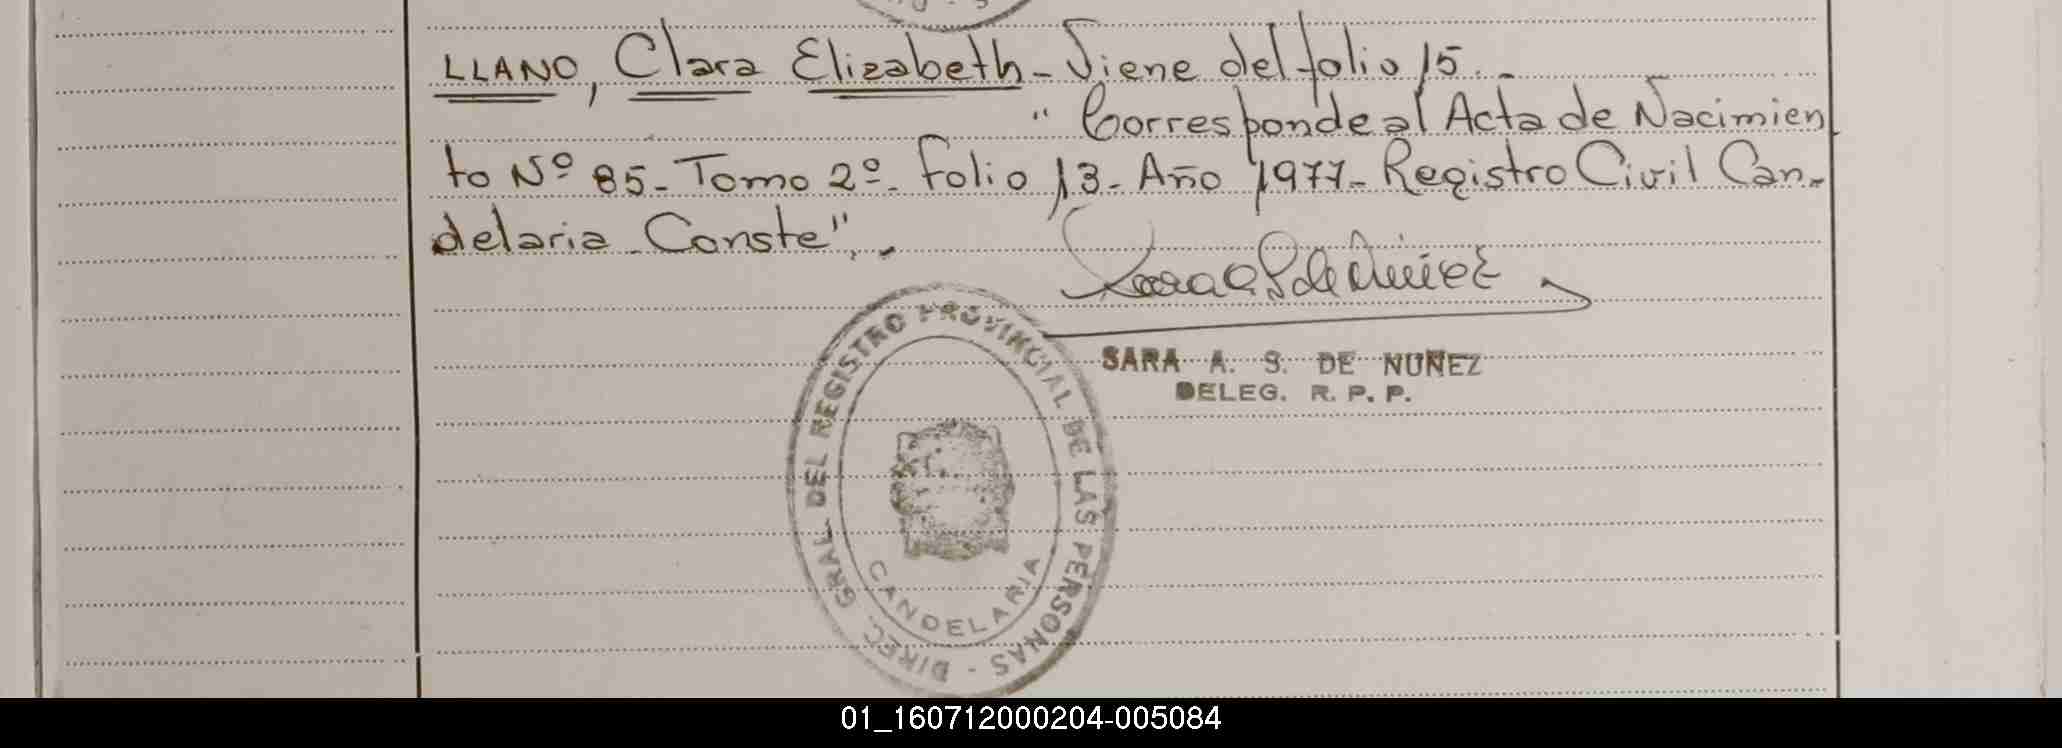 LLANO, Clara Elizabeth - Viene del folio 15.-
" Corresponde al Acta de Nacimien
to Nº 85 - Tomo 2º - Folio 13 - Año 1977 - Registro Civil Can-
delaria - Conste".-
SARA A. S. DE NUÑEZ
DELEG. R. P. P.
DIREC. GRAL. DEL REGISTRO PROVINCIAL DE LAS PERSONAS -
CANDELARIA
01_160712000204-005084